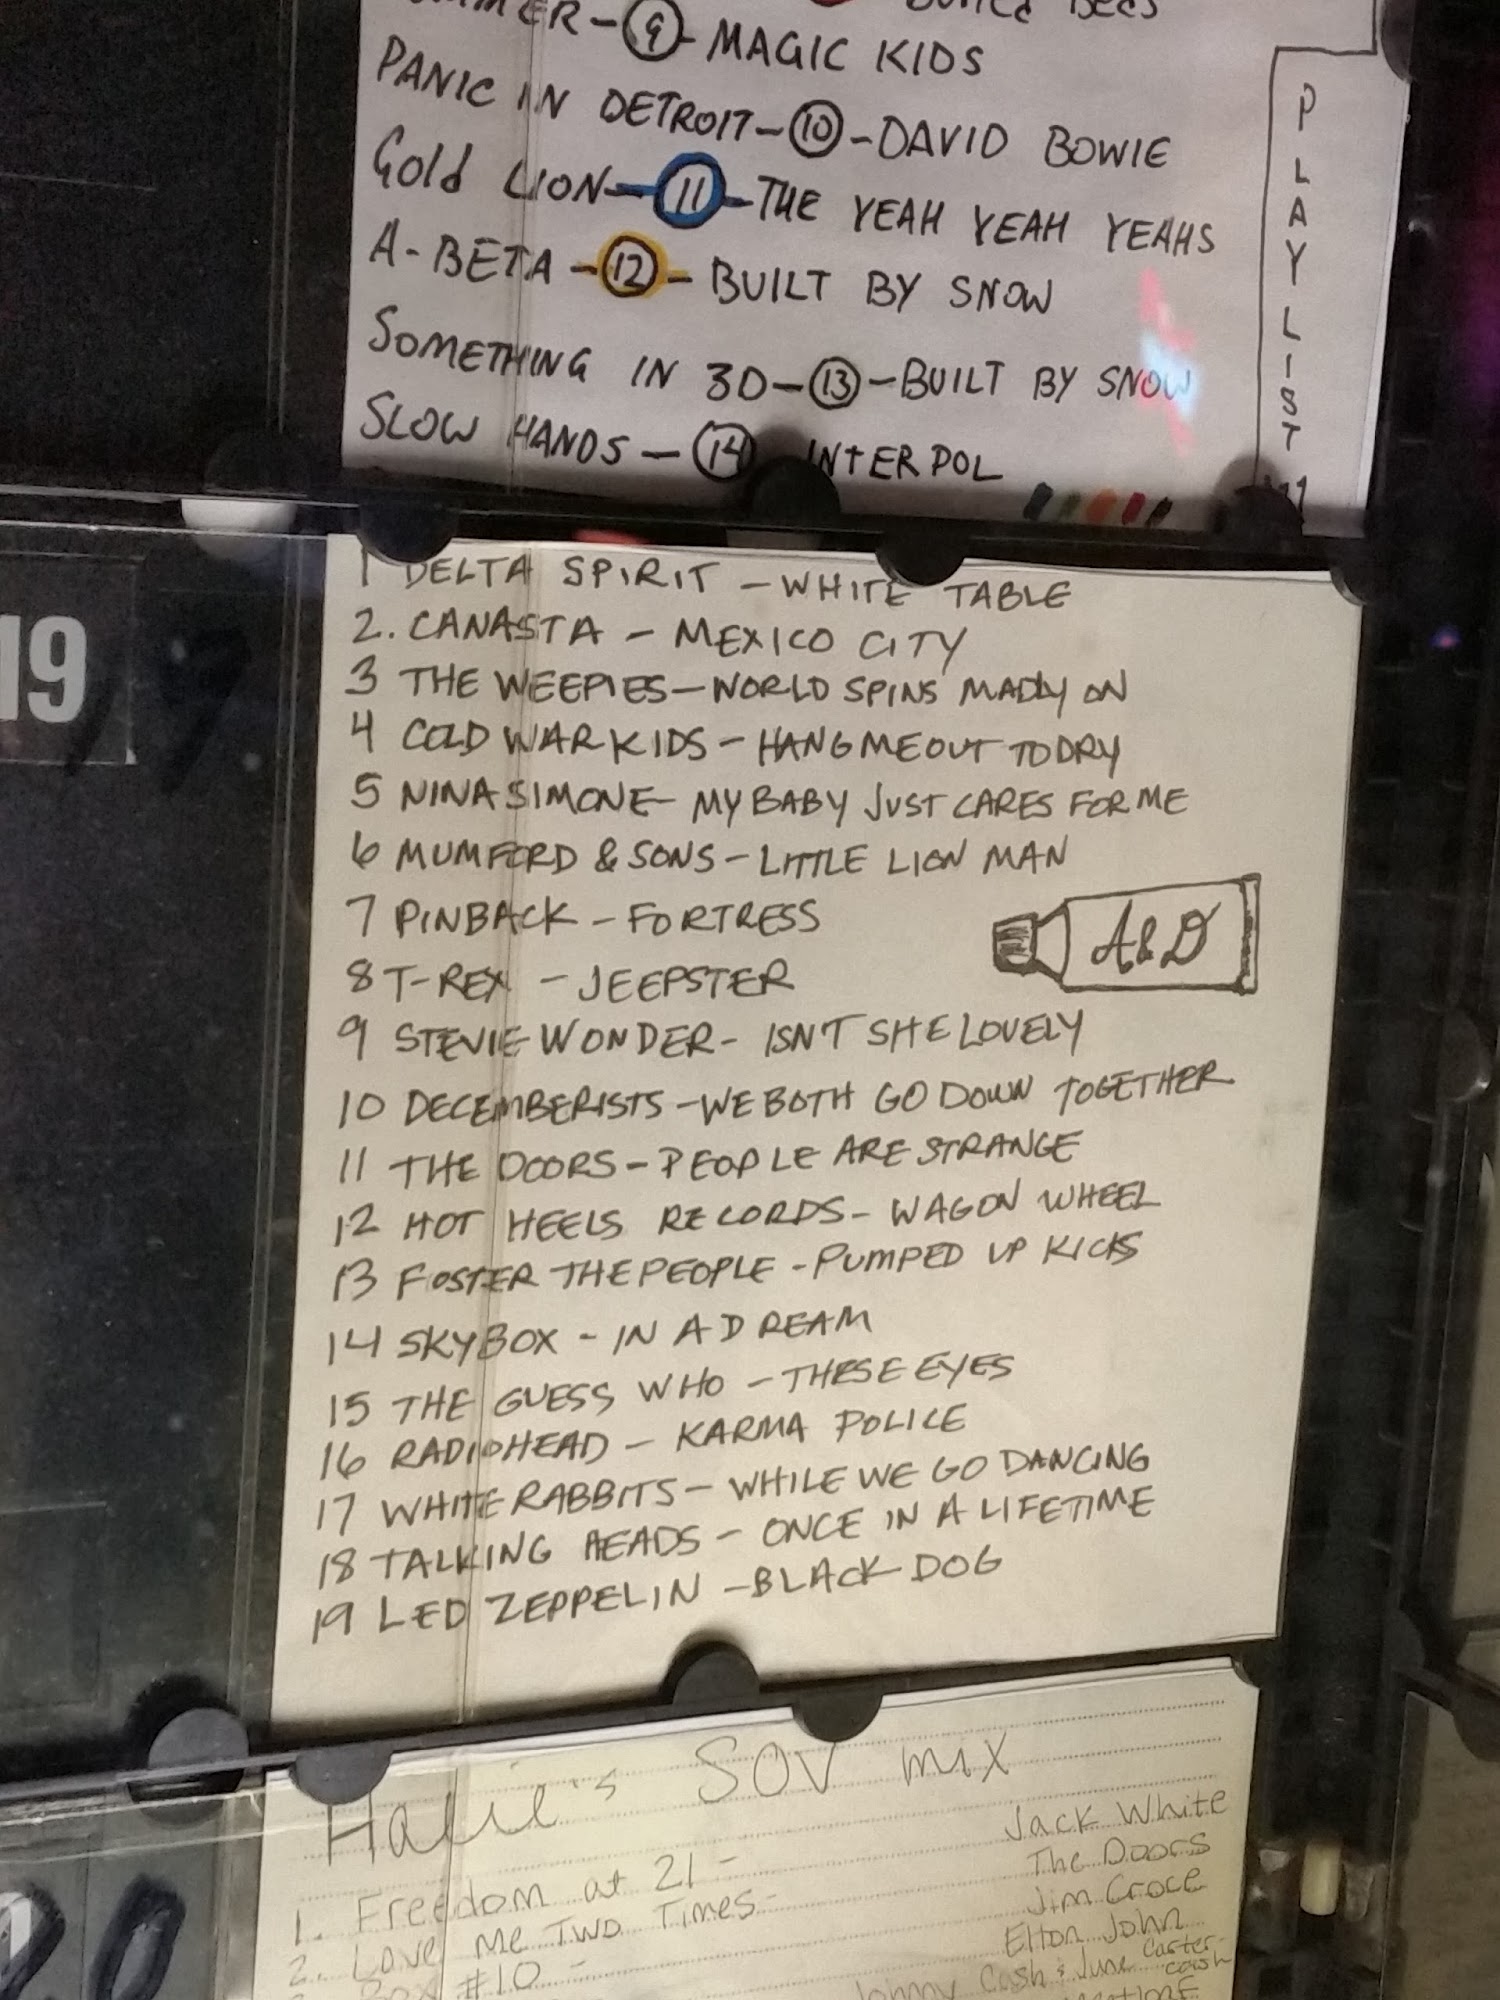 MAGIC KIDS
9
PANIC IN DETROIT-10-DAVID BOWIE
Gold LION-11-THE YEAH YEAH YEAHS
A-BETA-12-BUILT BY SNOW
SOMETHING IN 3D-13-BUILT BY SNOW
SLOW HANDS-14 INTERPOL
PLAYLIST
19
1 DELTA SPIRIT - WHITE TABLE
2. CANASTA - MEXICO CITY
3 THE WEEPIES - WORLD SPINS MADLY ON
4 COLD WAR KIDS - HANG ME OUT TO DRY
5 NINA SIMONE - MY BABY JUST CARES FOR ME
6 MUMFORD & SONS - LITTLE LION MAN
7 PINBACK - FORTRESS
A&D
8 T-REX - JEEPSTER
9 STEVIE WONDER - ISN'T SHE LOVELY
10 DECEMBERISTS - WE BOTH GO DOWN TOGETHER
11 THE DOORS - PEOPLE ARE STRANGE
12 HOT HEELS RECORDS - WAGON WHEEL
13 FOSTER THE PEOPLE - PUMPED UP KICKS
14 SKYBOX - IN A DREAM
15 THE GUESS WHO - THESE EYES
16 RADIOHEAD - KARMA POLICE
17 WHITE RABBITS - WHILE WE GO DANCING
18 TALKING HEADS - ONCE IN A LIFETIME
19 LED ZEPPELIN - BLACK DOG
20
Hallie's SOV mix
1. Freedom at 21 - Jack White
2. Love Me Two Times - The Doors
Box #10 - Jim Croce
Elton John
Johnny Cash & June Carter-Cash